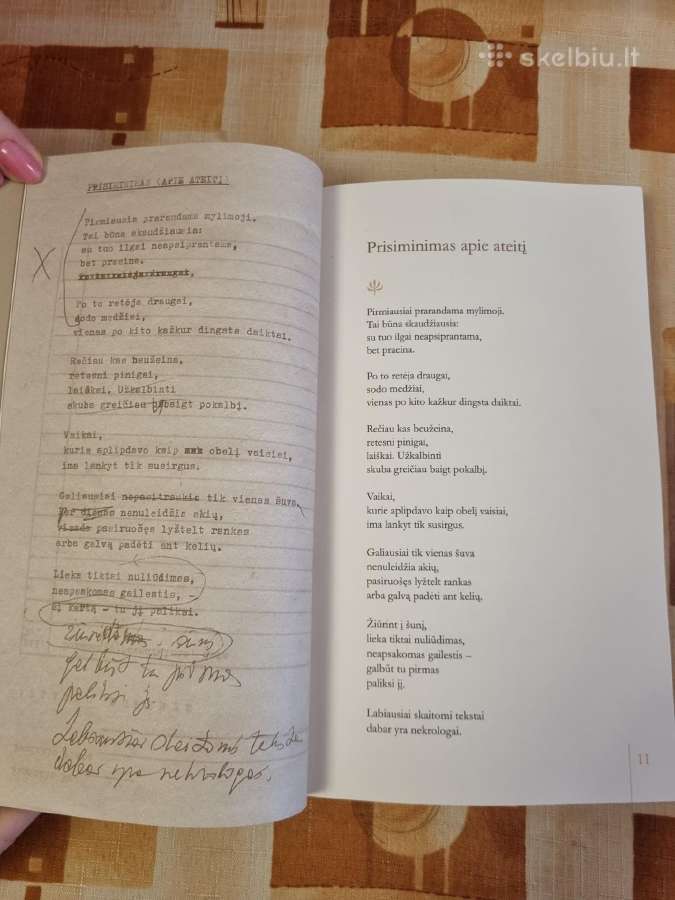 skelbiu.lt
PRISIMINIMAS (APIE ATEITĮ)
Pirmiausia prarandama mylimoji.
Tai būna skaudžiausia:
su tuo ilgai neapsiprantama,
bet praeina.
Po to retėja draugai,
sodo medžiai,
vienas po kito kažkur dingsta daiktai.
Rečiau kas beužeina,
retesni pinigai,
laiškai. Užkalbinti
skuba greičiau pabaigt pokalbį.
Vaikai,
kurie aplipdavo kaip obelį vaisiai,
ima lankyt tik susirgus.
Galiausiai nepasitraukia tik vienas šuva
nenuleidžia akių,
pasiruošęs lyžtelt rankas
arba galvą padėti ant kelių.
Lieka tiktai nuliūdimas,
neapsakomas gailestis, –
šį kartą – tu jį paliksi.
šunį
galbūt tu pirmas
paliksi jį
Labiausiai skaitomi tekstai
dabar yra nekrologai.
Prisiminimas apie ateitį
Pirmiausiai prarandama mylimoji.
Tai būna skaudžiausia:
su tuo ilgai neapsiprantama,
bet praeina.
Po to retėja draugai,
sodo medžiai,
vienas po kito kažkur dingsta daiktai.
Rečiau kas beužeina,
retesni pinigai,
laiškai. Užkalbinti
skuba greičiau baigt pokalbį.
Vaikai,
kurie aplipdavo kaip obelį vaisiai,
ima lankyt tik susirgus.
Galiausiai tik vienas šuva
nenuleidžia akių,
pasiruošęs lyžtek rankas
arba galvą padėti ant kelių.
Žiūrint į šunį,
lieka tiktai nuliūdimas,
neapsakomas gailestis –
galbūt tu pirmas
paliksi jį.
Labiausiai skaitomi tekstai
dabar yra nekrologai.
11